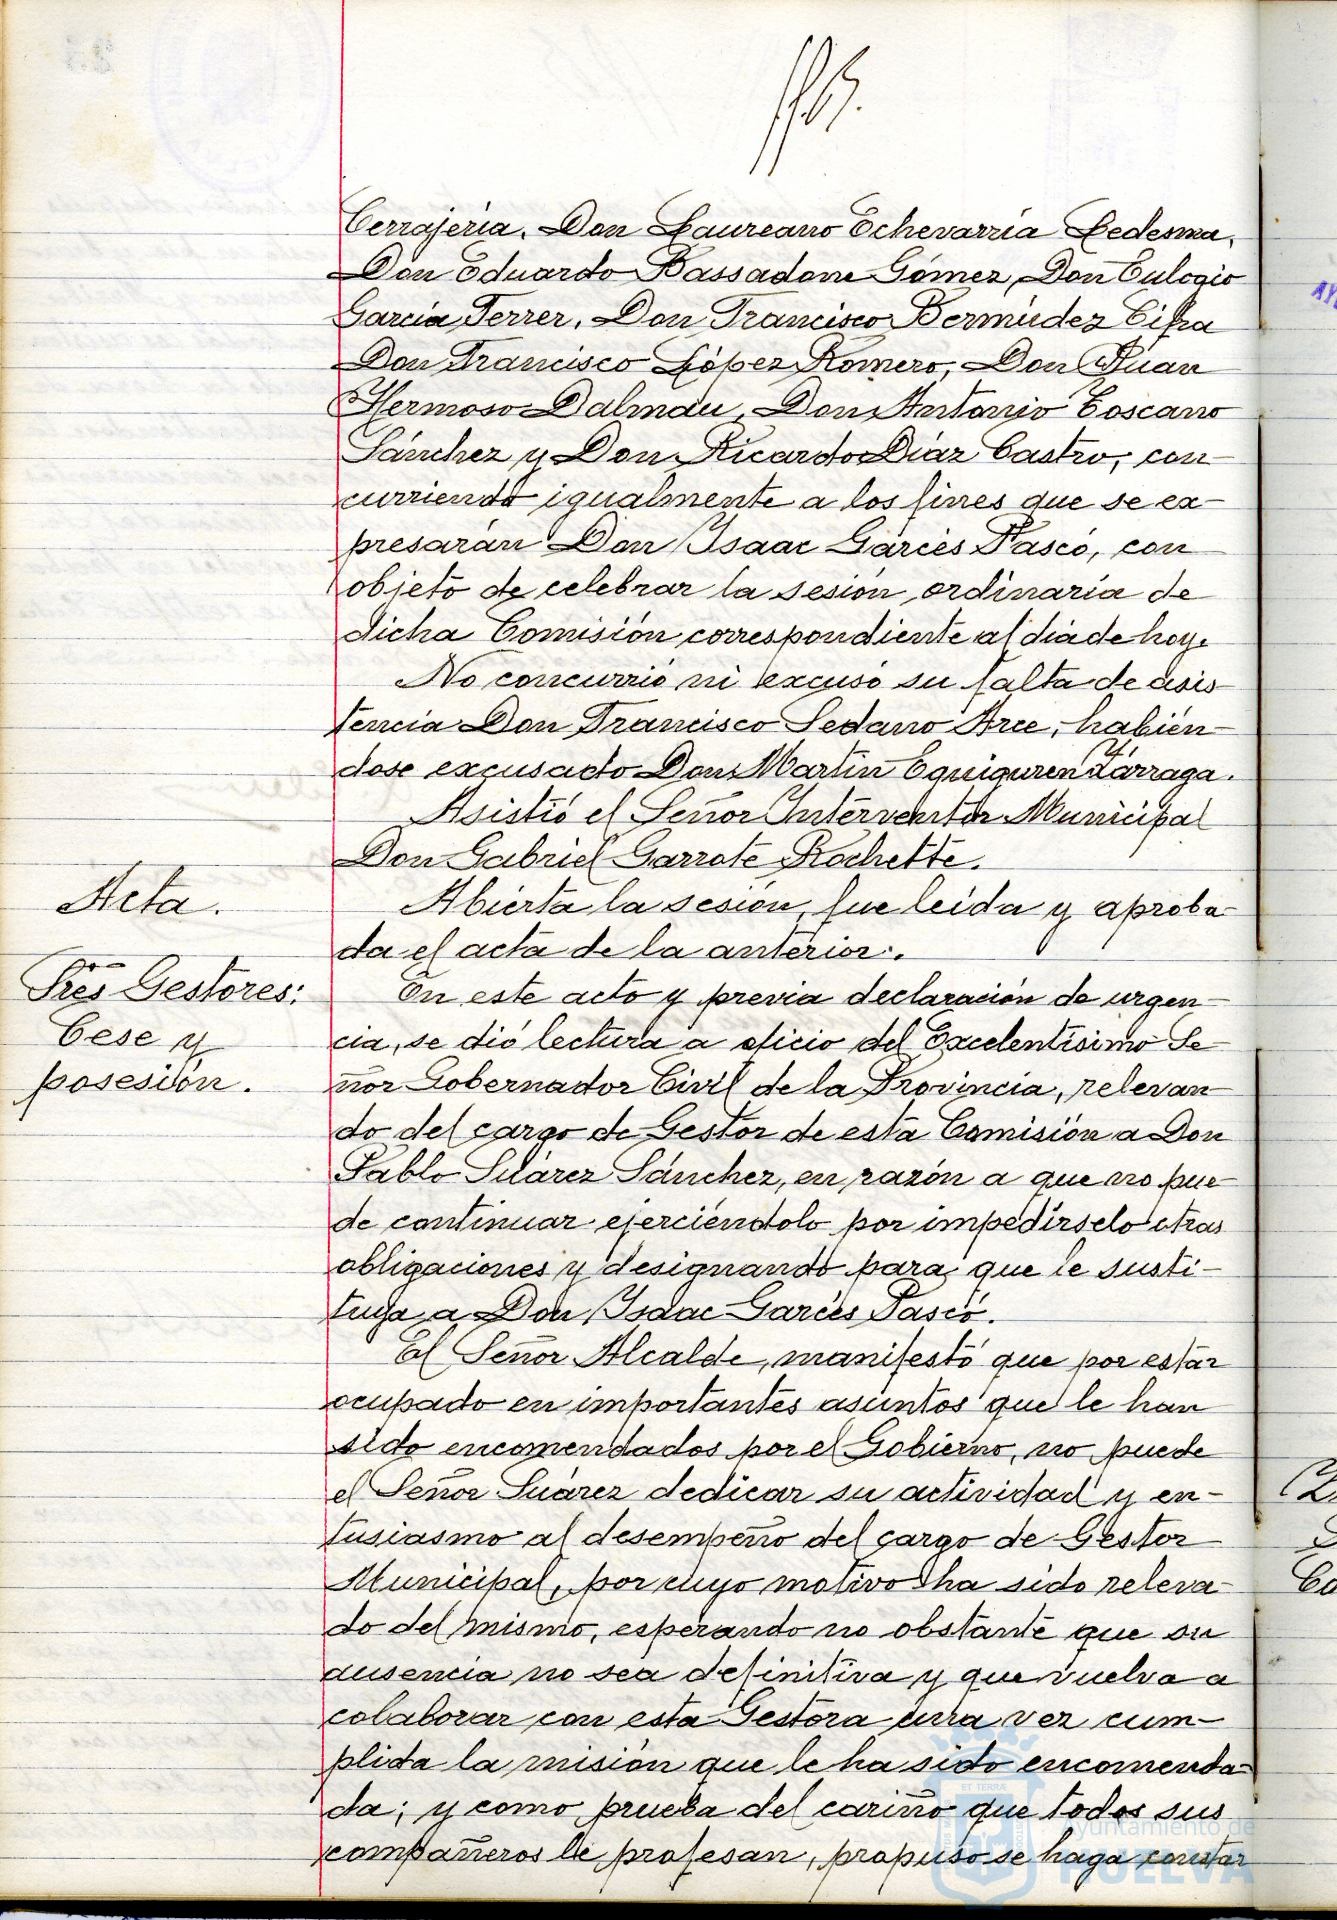 Cerrajería, Don Laureano Echevarría Ledesma,
Don Eduardo Bassadone Gómez, Don Eulogio
García Ferrer, Don Francisco Bermúdez Cifra
Don Francisco López Romero, Don Juan
Hermoso Dalmau, Don Antonio Toscano
Sánchez y Don Ricardo Díaz Castro, con-
curriendo igualmente a los fines que se ex-
presarán Don Isaac Garcés Pascó, con
objeto de celebrar la sesión ordinaria de
dicha Comisión correspondiente al día de hoy.
No concurrió ni excusó su falta de asis-
tencia Don Francisco Sedano Arce, habién-
dose excusado Don Martín Eguiguren Yárraga.
Asistió el Señor Interventor Municipal
Don Gabriel Garrote Rochette.
Acta.
Abierta la sesión, fue leída y aproba-
da el acta de la anterior.
Tres Gestores:
Cese y
posesión.
En este acto y previa declaración de urgen-
cia, se dió lectura a oficio del Excelentísimo Se-
ñor Gobernador Civil de la Provincia, relevan-
do del cargo de Gestor de esta Comisión a Don
Pablo Suárez Sánchez, en razón a que no pue-
de continuar ejerciéndolo por impedírselo otras
obligaciones y designando para que le susti-
tuya a Don Isaac Garcés Pascó.
El Señor Alcalde, manifestó que por estar
ocupado en importantes asuntos que le han
sido encomendados por el Gobierno, no puede
el Señor Suárez dedicar su actividad y en-
tusiasmo al desempeño del cargo de Gestor
Municipal, por cuyo motivo ha sido releva-
do del mismo, esperando no obstante que su
ausencia no sea definitiva y que vuelva a
colaborar con esta Gestora una vez cum-
plida la misión que le ha sido encomenda-
da; y como prueba del cariño que todos sus
compañeros le profesan, propuso se haga constar
Ayuntamiento de
HUELVA